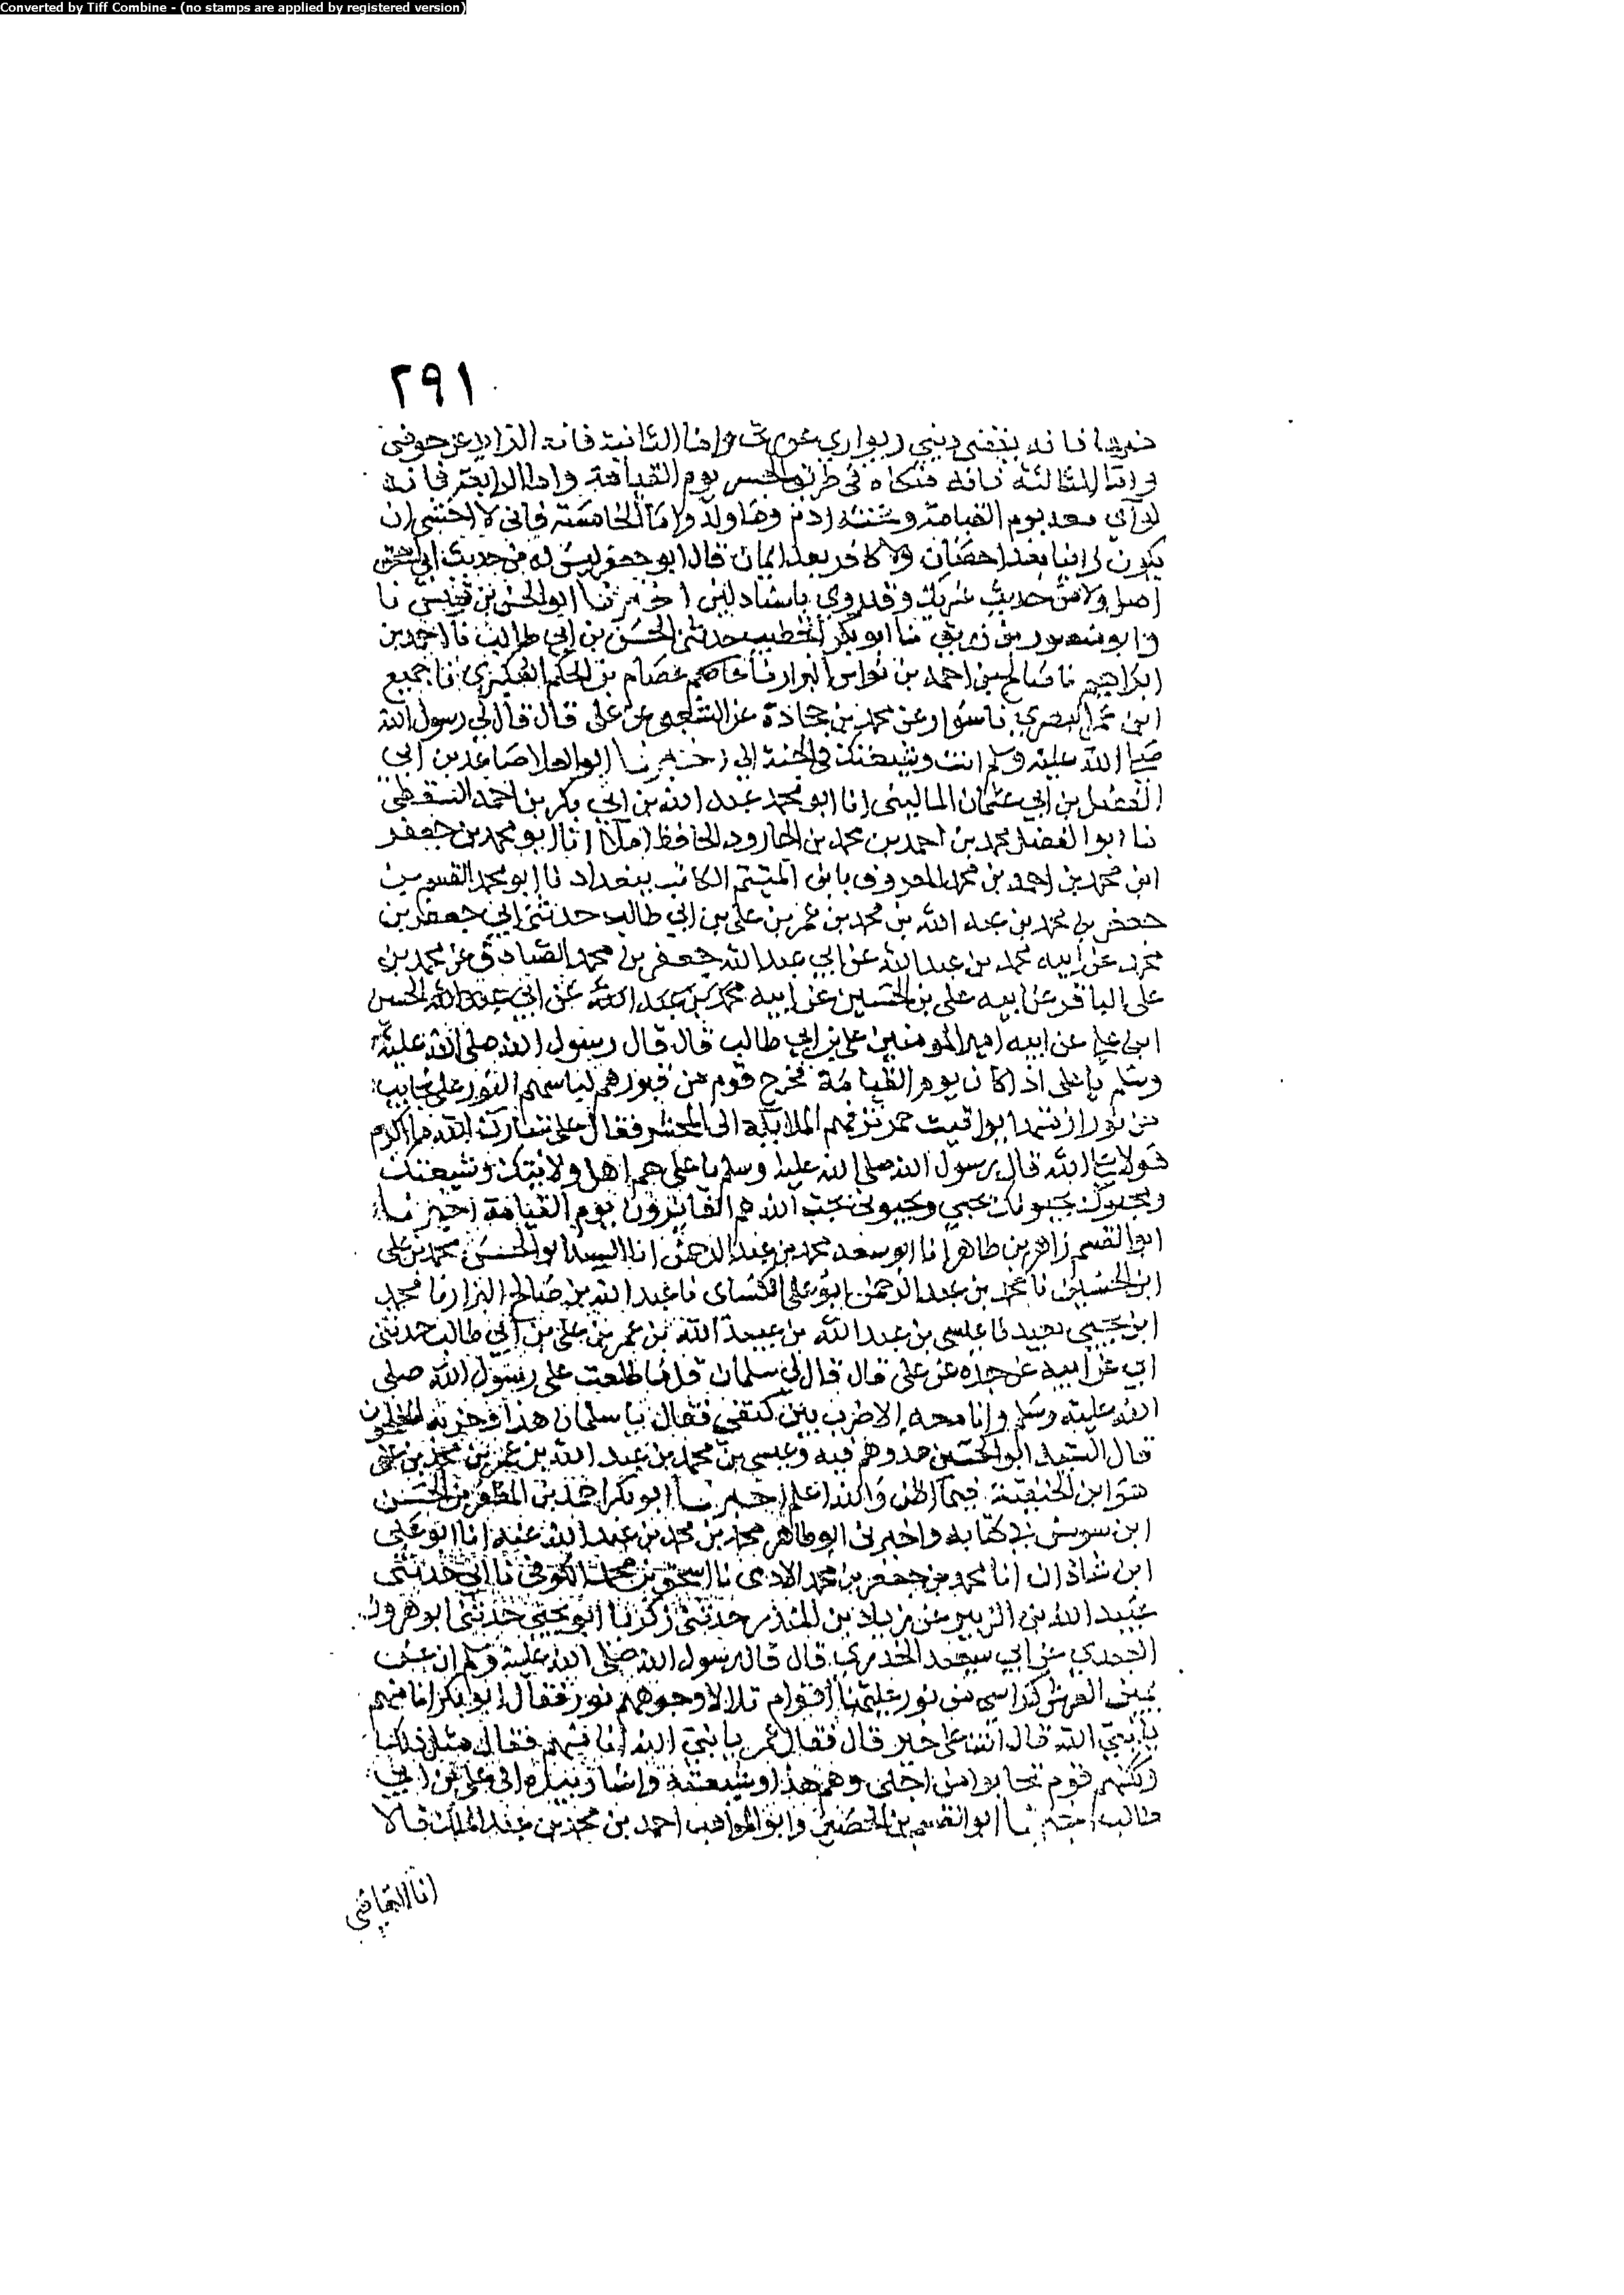 Converted by Tiff Combine - (no stamps are applied by registered version)
٢٩١
فانه يقضى ديني ويواري عورتي واما الثانية فانه الذايد عن حوضي
واما الثالثة فانه متكاه في طريق الحشر يوم القيامة واما الرابعة فانه
لوآي معه يوم القيامة وتحته ادم وما ولد واما الخامسة فاني لا اخشى ان
يكون زانيا بعد احصان ولا كافر بعد ايمان قال ابو جعفر ليس له من حديث ابي
اصل ولا من حديث شريك وقد روي باسناد لين اخبرنا ابو الحسن بن قبيس نا
وابو منصور بن زريق نا ابو بكر الخطيب حدثني الحسن بن ابي طالب نا احمد بن
ابراهيم نا صالح بن احمد بن يونس البزار نا عاصم عصام بن الحكم العكبري نا جميع
ابن عمر البصري نا سوار عن محمد بن جحادة عن الشعبي عن علي قال قال لي رسول الله
صلى الله عليه وسلم انت وشيعتك في الجنة اخبرنا ابو العلا صاعد بن ابي
الفضل بن ابي عثمان الماليني انا ابو محمد عبد الله بن ابي بكر بن احمد السقطي
نا ابو الفضل محمد بن احمد بن محمد بن الجارود الحافظ املا انا ابو محمد بن جعفر
ابن محمد بن احمد بن محمد المعروف بابن المتيم الكاتب ببغداد نا ابو محمد القسم بن
جعفر بن محمد بن عبد الله بن محمد بن عمر بن علي بن ابي طالب حدثني ابي جعفر بن
محمد عن ابيه محمد بن عبد الله عن ابي عبد الله جعفر بن محمد الصادق عن محمد بن
علي الباقر عن ابيه علي بن الحسين عن ابيه محمد بن عبد الله عن ابي عبد الله الحسين
ابن علي عن ابيه امير المومنين علي بن ابي طالب قال قال رسول الله صلى الله عليه
وسلم يا علي اذا كان يوم القيامة يخرج قوم من قبورهم لباسهم النور على نجايب
من نور ازمتها يواقيت حمر تزفهم الملايكة الى المحشر فقال علي تبارك الله ما اكرم
هولا على الله قال رسول الله صلى الله عليه وسلم يا علي هم اهل ولايتك وشيعتك
ومحبوك يحبونك بحبي ويحبوني بحب الله هم الفايزون يوم القيامة اخبرنا
ابو القسم زاهر بن طاهر انا ابو سعد محمد بن عبد الرحمن انا السيد ابو الحسن محمد بن علي
ابن الحسين نا محمد بن عبد الرحمن ابو علي الكسائي نا عبد الله بن صالح البزار نا محمد
ابن يحيى نا عيسى بن عبد الله بن عبيد الله بن عمر بن علي بن ابي طالب حدثني
ابي عن ابيه عن جده عن علي قال قال لي سلمان قل ما طلعت على رسول الله صلى
الله عليه وسلم وانا معه الا ضرب بين كتفي فقال يا سلمان هذا وحزبه المفلحون
قال السيد ابو الحسن هو وهم فيه وعيسى بن محمد بن عبد الله بن عمر بن محمد بن علي
هو ابن الحنفية فيما اظن والله اعلم اخبرنا ابو بكر احمد بن المظفر بن الحسن
ابن سوسن في كتابه واخبرني ابو طاهر محمد بن محمد بن عبد الله عنه انا ابو علي
ابن شاذان انا محمد بن جعفر بن محمد الادمي نا اسحق بن محمد الكوفي نا ابي حدثني
عبيد الله بن الزبير عن زياد بن المنذر حدثني زكريا ابو يحيى حدثني ابو هرون
العبدي عن ابي سعيد الخدري قال قال رسول الله صلى الله عليه وسلم ان عن
يمين العرش كراسي من نور عليها اقوام تلالا وجوههم نور فقال ابو بكر انا منهم
يا نبي الله قال انت على خير قال فقال عمر يا نبي الله انا منهم فقال مثل ذلك
ولكنهم قوم تحابوا من اجلي وهم هذا وشيعته واشار بيده الى علي بن ابي
طالب اخبرنا ابو القسم بن الحصين وابو المواهب احمد بن محمد بن عبد الملك قالا
انا القاضي